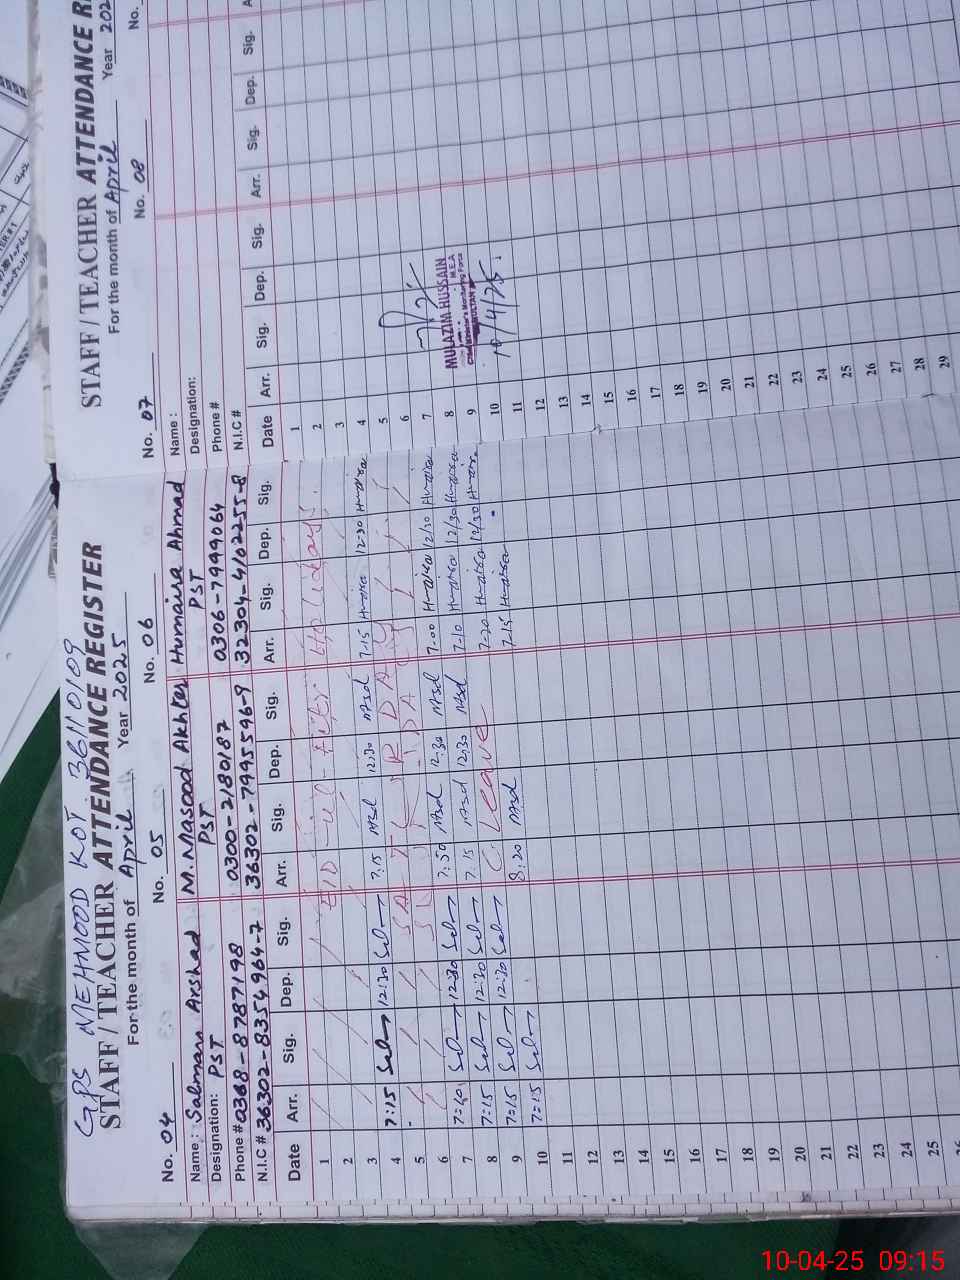 GPS MEHMOOD KOT 36110109
STAFF / TEACHER ATTENDANCE REGISTER
For the month of April Year 2025
No. 04 No. 05 No. 06
Name: Salman Arshad M. Masood Akhter Humaira Ahmad
Designation: PST PST PST
Phone # 0368-8787198 0300-2118087 0306-7999064
N.I.C # 36302-8354964-7 36302-7995596-9 32304-4102255-8
Date Arr. Sig. Dep. Sig. Arr. Sig. Dep. Sig. Arr. Sig. Dep. Sig.
1 EID-ul-Fitr Holidays
2
3 7:15 12:30 7:15 12:30 7-15 Humaira 12-30 Humaira
4 SATURDAY
5 SUNDAY
6 7:10 12:30 7:50 12:30 7-00 Humaira 12/30 Humaira
7 7:15 12:30 7:15 12:30 7-10 Humaira 12/30 Humaira
8 7:15 12:30 C. Leave 7-20 Humaira 12/30 Humaira
9 7:15 8:20 7-15 Humaira
10
11
12
13
14
15
16
17
18
19
20
21
22
23
24
25
26
STAFF / TEACHER ATTENDANCE R
For the month of April Year 202
No. 07 No. 08 No.
Name :
Designation:
Phone #
N.I.C #
Date Arr. Sig. Dep. Sig. Arr. Sig. Dep. Sig. A
1
2
3
4
5
6
7
8
9
10
11
12
13
14
15
16
17
18
19
20
21
22
23
24
25
26
27
28
29
MULAZIM HUSSAIN
M.E.A
Chief Minister's Monitoring Force
MULTAN
10/4/25.
10-04-25 09:15